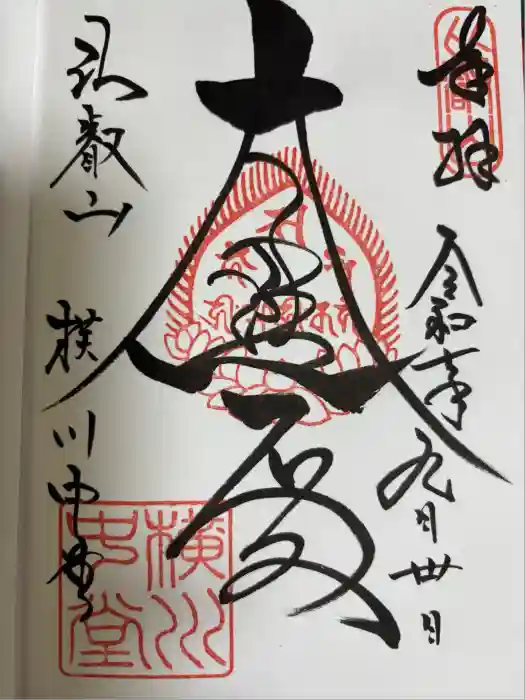 奉拝
令和元年九月卅日
大悲殿
比叡山 横川中堂
横川
中堂